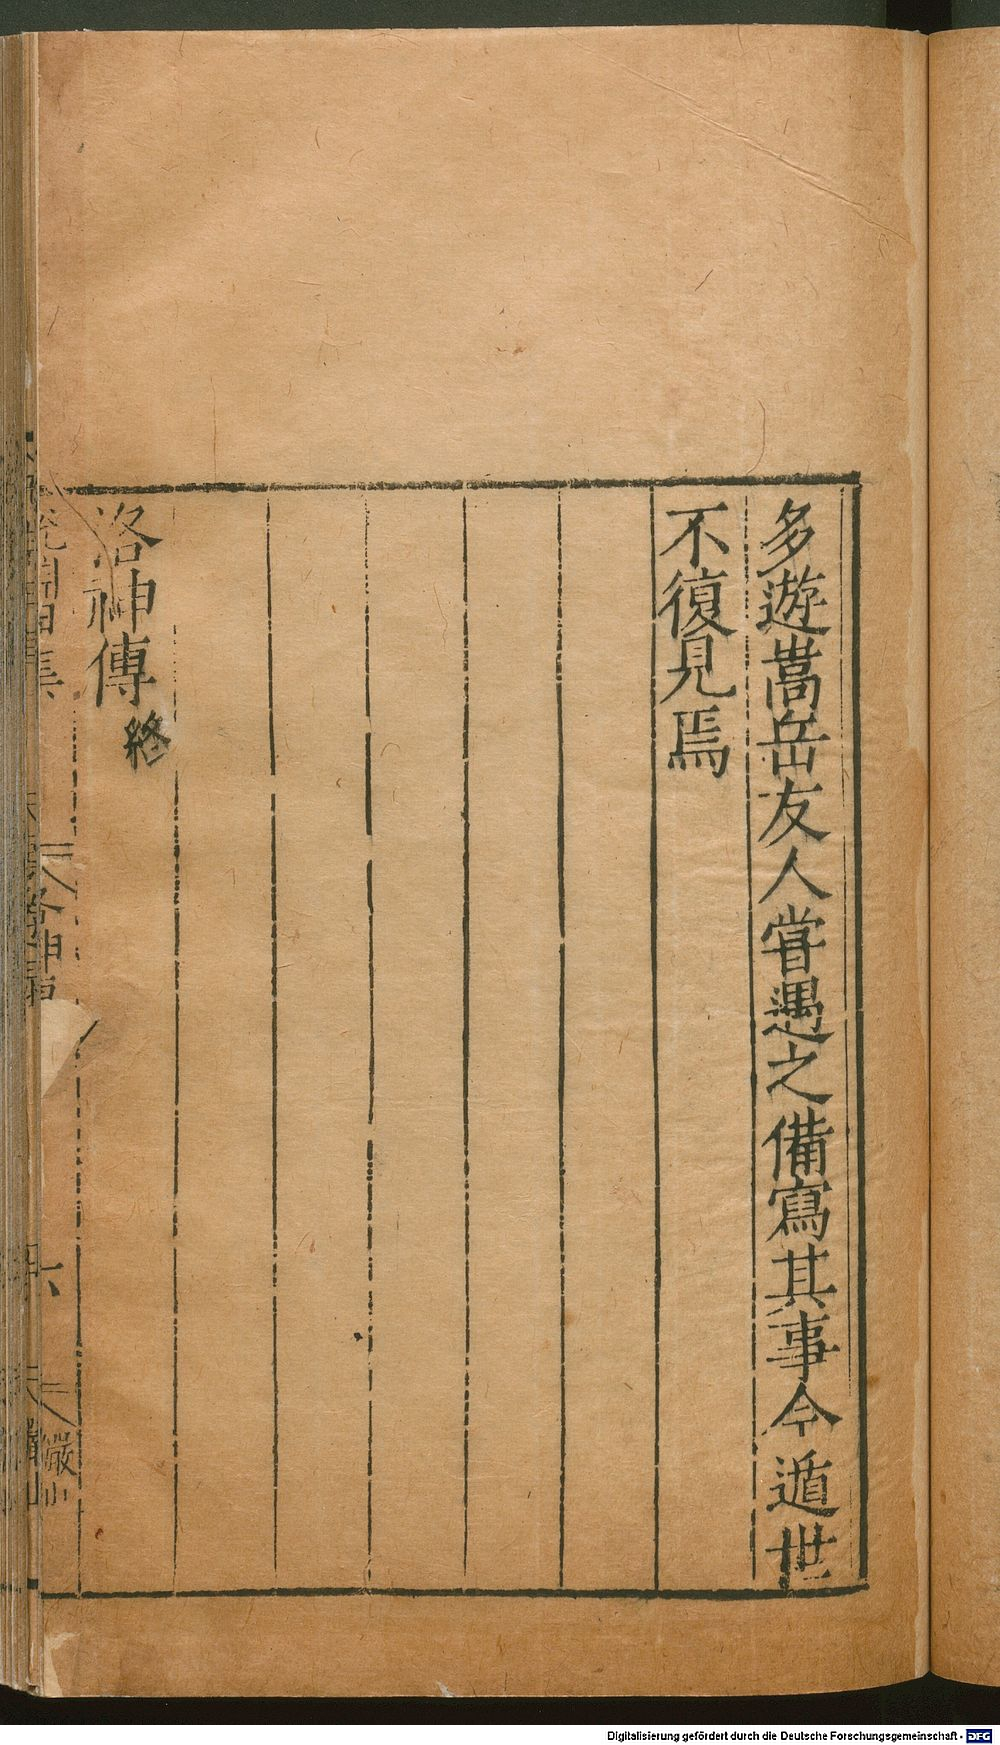 多遊嵩岳友人甞遇之備寫其事今遁世
不復見焉
洛神傳終
洛神
六
儼山
Digitalisierung gefördert durch die Deutsche Forschungsgemeinschaft - DFG